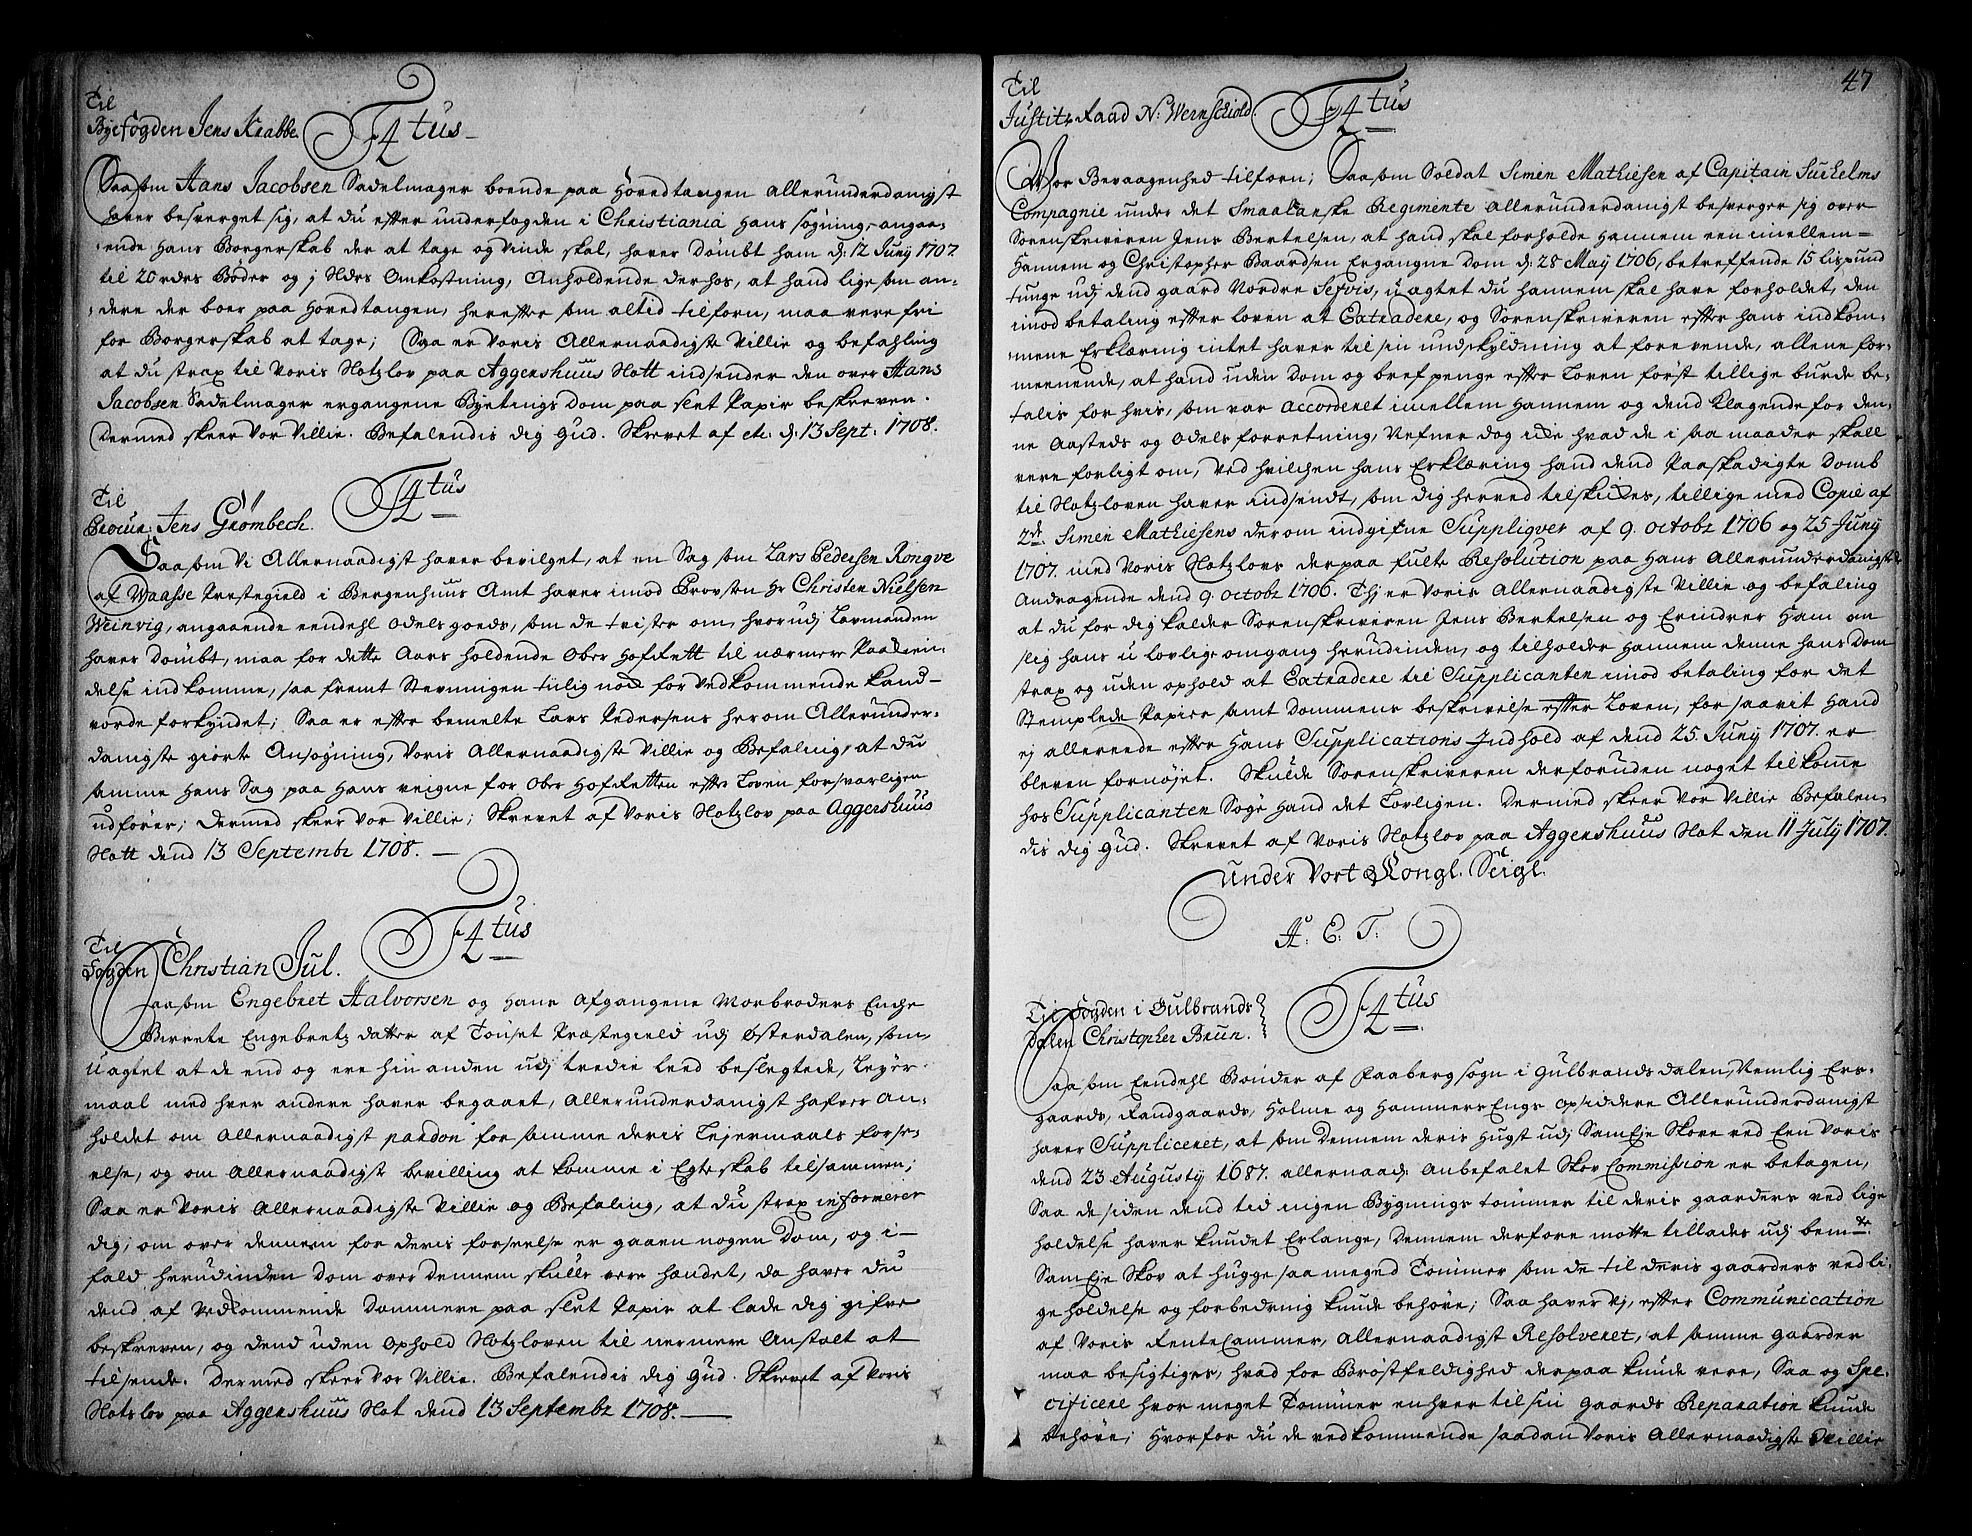 Til
Byefogden Jens Krabbe. F4tus
Saasom Hans Jacobsen Sadelmager boende paa Hovedtangen allerunderdanigst
haver besverget sig, at du efter underfogden i Christiania hans søgning, angaa-
ende hans Borgerskab der at tage og vinde skal, haver dømbt ham d: 12 Junij 1707.
til 20 rdrs Bøder og j Rdrs Omkostning, anholdende derhos, at hand ligesom an-
dere der boer paa Hovedtangen, herefter som altid tilforn, maa vere fri
for Borgerskab at tage; Saa er Voris Allernaadigste Villie og befahling
at du strax til Voris Slotzlov paa Aggershuus Slott indsender den over Hans
Jacobsen Sadelmager ergangene Byetings Dom paa slet Papir beskreven.
Dermed skeer Vor Villie. Befalendis dig Gud. Skrevet af etc. d: 13 Sept: 1708.
Til
Procur: Jens Grømbech. F4tus
Saasom Vi Allernaadigst haver bevilget, at en Sag som Lars Pedersen Rongve
af Waasse Prestegield i Bergenhuus Amt haver imod Provsten Hr Christen Nielsen
Weinvig, angaaende eendehl Odels goeds, som de tvister om, hvorudj Lavmanden
haver dømbt, maa for dette Aars holdende Ober HofRett til nærmere Paakien-
delse indkomme, saa fremt Stevningen tiilig nock for Vedkommende kand
vorde forkyndet; Saa er efter bemelte Lars Pedersens herom Allerunder-
danigste giorte Ansøgning, Voris Allernaadigste Villie og Befaling, at du
samme hans Sag paa hans veigne for Ober HofRetten efter Loven forsvarligen
udfører; Dermed skeer Vor Villie; Skrevet af Voris Slotzlov paa Aggershuus
Slott dend 13 Septembr 1708.
Til
Fogden Christian Jul. F4tus
Saasom Engebret Halvorsen og hans Afgangene Morbroders Enche
Berrete Engebretzdatter af Tonset Præstegield udj Østerdalen, som
uagtet at de end og ere hin anden udj tredie leed beslegtede, Lejer-
maal med hver andere haver begaaet, allerunderdanigst hafver an-
holdet om allernaadigst pardon for samme deris Lejermaals forse-
else, og om allernaadigst bevilling at komme i Egteskab tilsammen;
Saa er Voris Allernaadigste Villie og Befaling, at du strax informerer
dig, om over dennem for deris forseelse er gaaen nogen Dom, og i-
fald herudinden Dom over dennem skulle vere hændet, da haver du
dend af Vedkommende Dommere paa slet Papir at lade dig gifve
beskreven, og dend uden Ophold Slotzloven til nermere Anstalt at
tilsende. Dermed skeer Vor Villie. Befalendis dig Gud. Skrevet af Voris
Slotzlov paa Aggershuus Slot dend 13 Septembr 1708.
47
Til
Justitz Raad N: Wernschiold. F4tus
Vor Bevaagenhed tilforn; Saasom Soldat Simen Mathiesen af Capitain Suchelms
Compagnie under det Smaalanske Regimente allerunderdanigst besverger sig over
Sorenskriveren Jens Bertelsen, at hand skal forholde hannem een imellem
hannem og Christopher Baardsen Ergangne Dom d: 28 May 1706, betreffende 15 lispund
tunge udj dend gaard Nordre Sefvis, uagtet du hannem skal have forholdet, den
imod betaling efter loven at Extradere, og Sorenskriveren efter hans indkom-
mene Erklæring intet haver til sin undskyldning at forevende, allene for-
meenende, at hand uden Dom og bref penge efter Loven først tillige burde be-
talis for hvis, som var accorderet imellem hannem og dend klagende for den-
ne Aasteds og Odels forretning, Nefner dog icke hvad de i saa maader skall
vere forligt om, ved hvilchen hans Erklæring hand dend Paaskadigte Domb
til Slotzloven haver indsendt, som dig herved tilskickes, tillige med Copie af
2de Simen Mathiesens derom indgifne Suppliqver af 9. octobr 1706 og 25 Junij
1707. med Voris Slotzlovs derpaa fulte Resolution paa hans allerunderdanigste
Andragende dend 9. octobr 1706. Thj er Voris Allernaadigste Villie og befaling
at du for dig kalder Sorenskriveren Jens Bertelsen og Erindrer ham om
slig hans ulovlige omgang herudinden, og tilholder hannem denne hans Dom
strax og uden ophold at Extradere til Supplicanten imod betaling for det
Stemplede Papir samt Dommens beskrivelse efter Loven, for saavit hand
ej allereede efter hans Supplications Indhold af dend 25. Junij 1707. er
bleven fornøjet. Skulde Sorenskriveren derforuden noget tilkomme
hos Supplicanten Søge hand det Lovligen. Dermed skeer Vor Villie Befalen-
dis dig Gud. Skrevet af Voris Slotzlov paa Aggershuus Slot den 11 July 1707.
Under Vort Kongl. Seigl.
A: E: T:
Til Fogden i Gulbrands
Dalen Christopher Brun. F4tus
Saasom Eendehl Bønder af Faaberg sogn i Gulbrandsdalen, Nemlig Ers-
gaards, Randgaards, Holme og Hammers Engs opsiddere Allerunderdanigst
haver Suppliceret, at som Dennem deris hugst udj SamEje Skove ved Een Voris
dend 23 Augusty 1687. allernaad: Anbefalet Skov Commission er betagen,
Saa de siden dend tid ingen Bygnings tømmer til deris gaarders ved lige
holdelse haver kundet Erlange, Dennem derfore motte tillades udj bemte
SamEje Skov at hugge saa meged Tømmer som de til deris gaarders vedli-
geholdelse og forbedrnig kunde behøve; Saa haver Vj, efter Communication
af Voris RenteCammer, Allernaadigst Resolveret, at samme gaarder
maa besigtiges, hvad for Brøstfeldighed derpaa kunde vere, Saa og Spe-
cificere hvor meget Tømmer enhver til sin gaards Reparation kunde
behøve; Hvorfor du de vedkommende saadan Voris Allernaadigste Villie